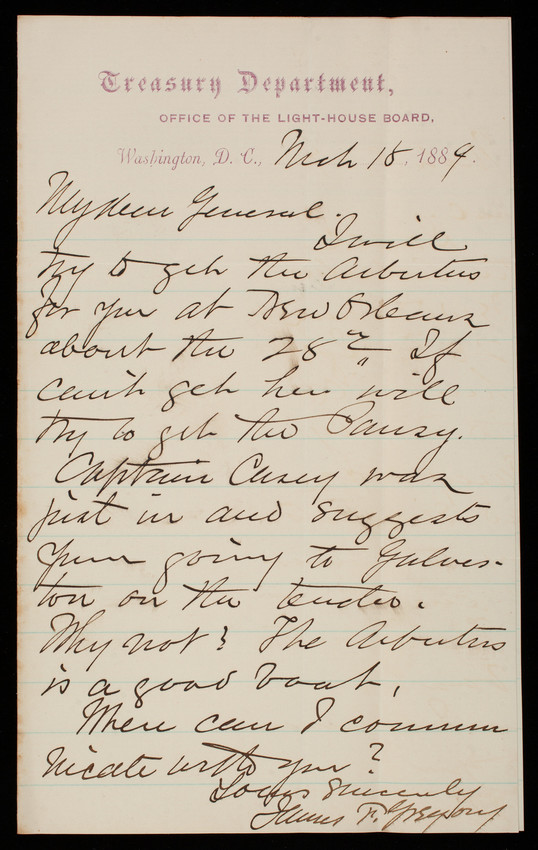 Treasury Department,
OFFICE OF THE LIGHT-HOUSE BOARD,
Washington, D. C., Mch 18, 1884.
My dear General.
I will
try to get the Arbutus
for you at New Orleans
about the 28th. If
can't get her will
try to get the Pansy.
Captain Casey was
just in and suggests
your going to Galves-
ton on the tender.
Why not? The Arbutus
is a good boat.
Where can I commu
nicate with you?
Yours sincerely
James F. Gregory